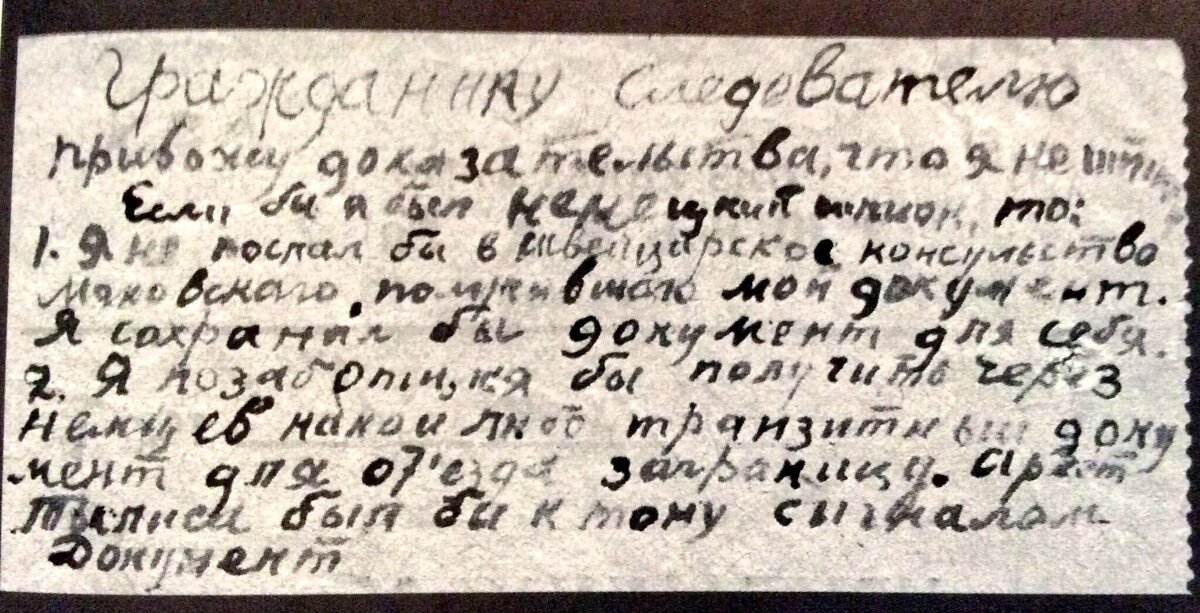 Гражданину следователю
привожу доказательства, что я не
Если бы я был немецкий шпион, то:
1. Я не послал бы в швейцарское консульство
Маковского, получившаго мой документ.
Я сохранил бы документ для себя.
2. Я позаботился бы получить через
немцев какой либо транзитный доку
мент для от'езда заграницу. Арест
был бы к тому сигналом
Документ